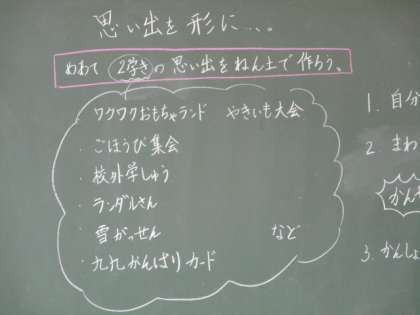 思い出を 形に…。
めあて 2学きの 思い出をねん土で 作ろう。
ワクワクおもちゃランド やきいも大会
・ごほうび集会
・校外学しゅう
・ランダルさん
・雪がっせん など
・九九がんばりカード
1. 自分
2. まわ
かんせ
3. かんしょ